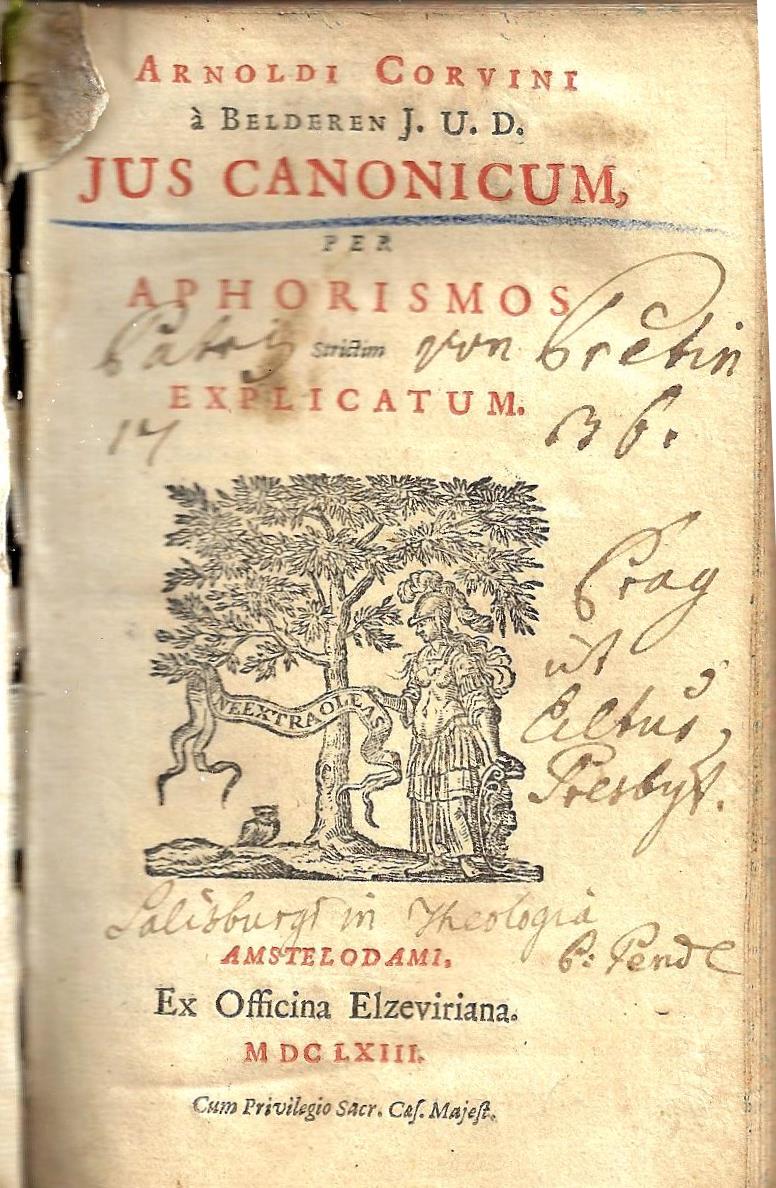 ARNOLDI CORVINI
à BELDEREN J. U. D.
JUS CANONICUM,
PER
APHORISMOS
Strictim von
EXPLICATUM.
17 36.
Prag
ut
NEEXTRAOLEAS
Presbyt.
Salisburgi in Theologia
AMSTELODAMI,
Ex Officina Elzeviriana.
MDCLXIII.
Cum Privilegio Sacr. Cæſ. Majeſt.